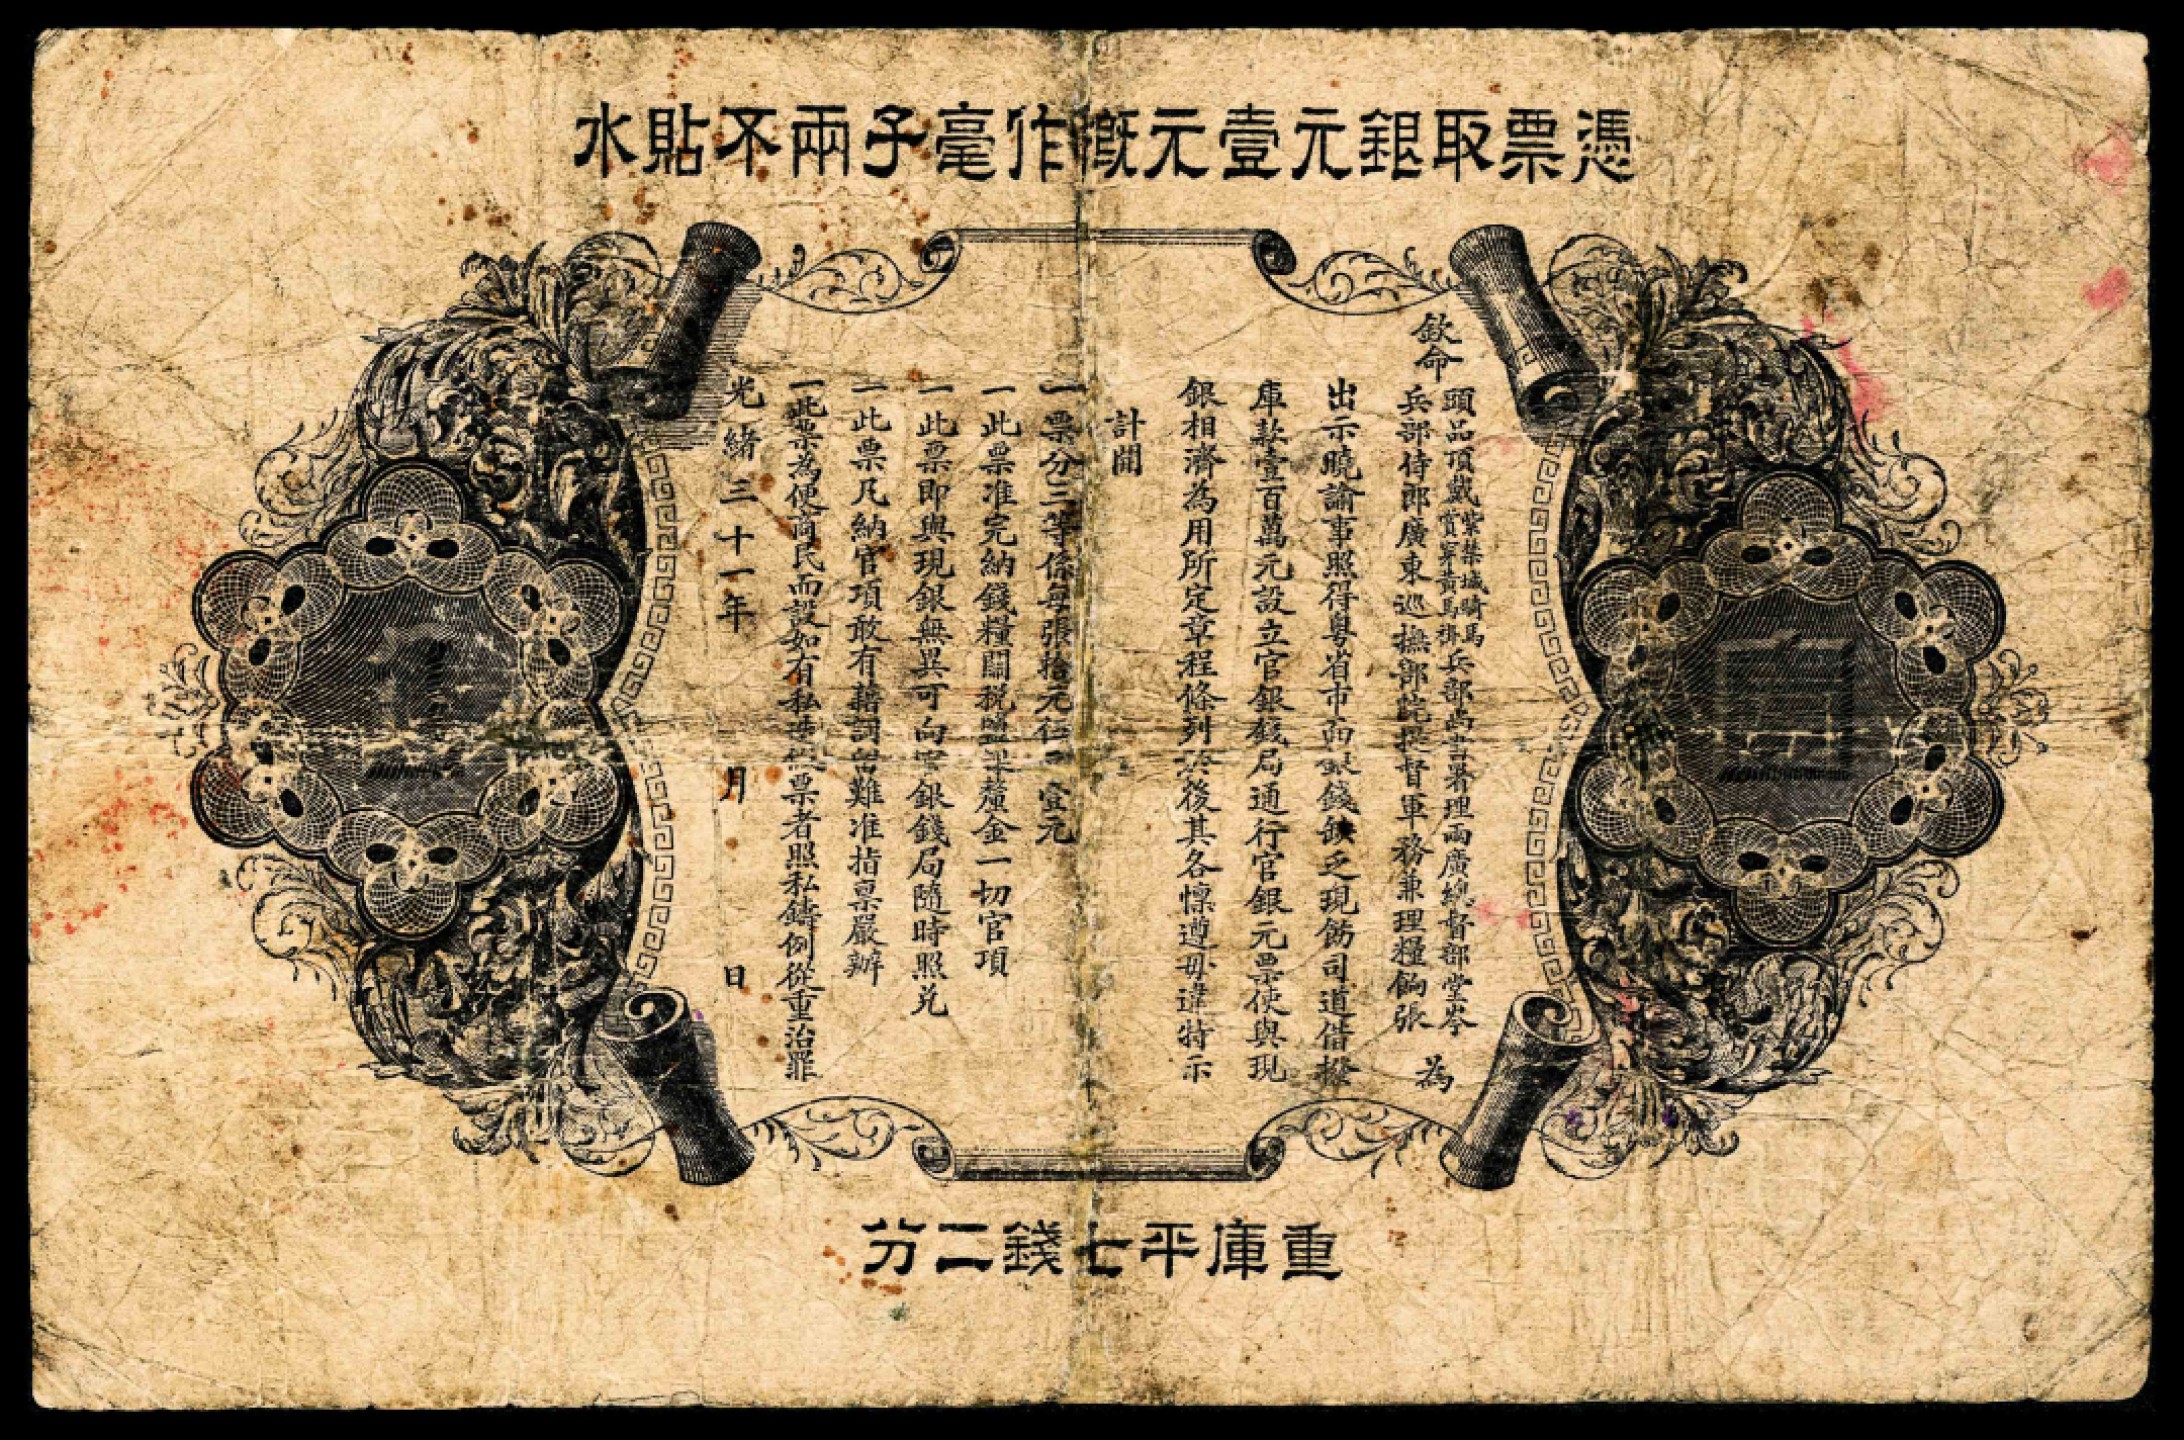 憑票取銀元壹元概作毫子兩不貼水
欽命
頭品頂戴紫禁城騎馬賞穿黃馬褂兵部尚書署理兩廣總督部堂岑
兵部侍郎廣東巡撫部院提督軍務兼理糧餉張
為
出示曉諭事照得粵省市面銀錢缺乏現飭司道借撥
庫款壹百萬元設立官銀錢局通行官銀元票使與現
銀相濟為用所定章程條列於後其各懍遵毋違特示
計開
一票分三等係每張拾元伍元壹元
一此票准完納錢糧關稅鹽課釐金一切官項
一此票即與現銀無異可向官銀錢局隨時照兑
一此票凡納官項敢有藉詞留難准指稟嚴辦
一此票為便商民而設如有私造假票者照私鑄例從重治罪
光緒三十一年 月 日
重庫平七錢二分
圓